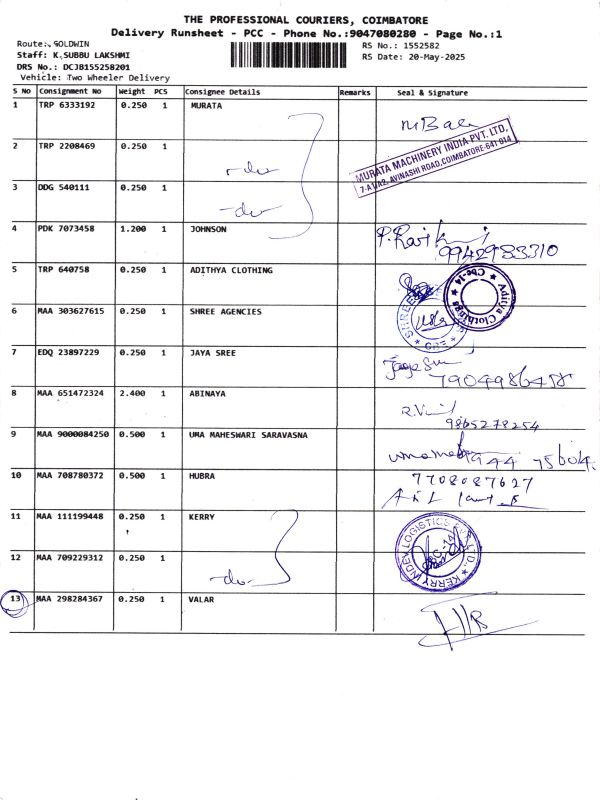 THE PROFESSIONAL COURIERS, COIMBATORE
Delivery Runsheet - PCC - Phone No.:9047080280 - Page No.:1
Route: GOLDWIN
RS No.: 1552582
Staff: K.SUBBU LAKSHMI
RS Date: 20-May-2025
DRS No.: DCJB155258201
Vehicle: Two Wheeler Delivery
S No Consignment No Weight PCS Consignee Details Remarks Seal & Signature
1 TRP 6333192 0.250 1 MURATA
MURATA MACHINERY INDIA PVT. LTD,
7-A1/A2, AVINASHI ROAD, COIMBATORE-641 014
2 TRP 2208469 0.250 1 -do-
3 DDG 540111 0.250 1 -do-
4 PDK 7073458 1.200 1 JOHNSON
9942983310
5 TRP 640758 0.250 1 ADITHYA CLOTHING
Cbe-14
6 MAA 303627615 0.250 1 SHREE AGENCIES
SHREE
CBE
7 EDQ 23897229 0.250 1 JAYA SREE
7904986458
8 MAA 651472324 2.400 1 ABINAYA
9865278254
9 MAA 9000084250 0.500 1 UMA MAHESWARI SARAVASNA
10 MAA 708780372 0.500 1 HUBRA
7708087627
11 MAA 111199448 0.250 1 KERRY
KERRY INDEV LOGISTICS PVT. LTD.
12 MAA 709229312 0.250 1 -do-
13 MAA 298284367 0.250 1 VALAR